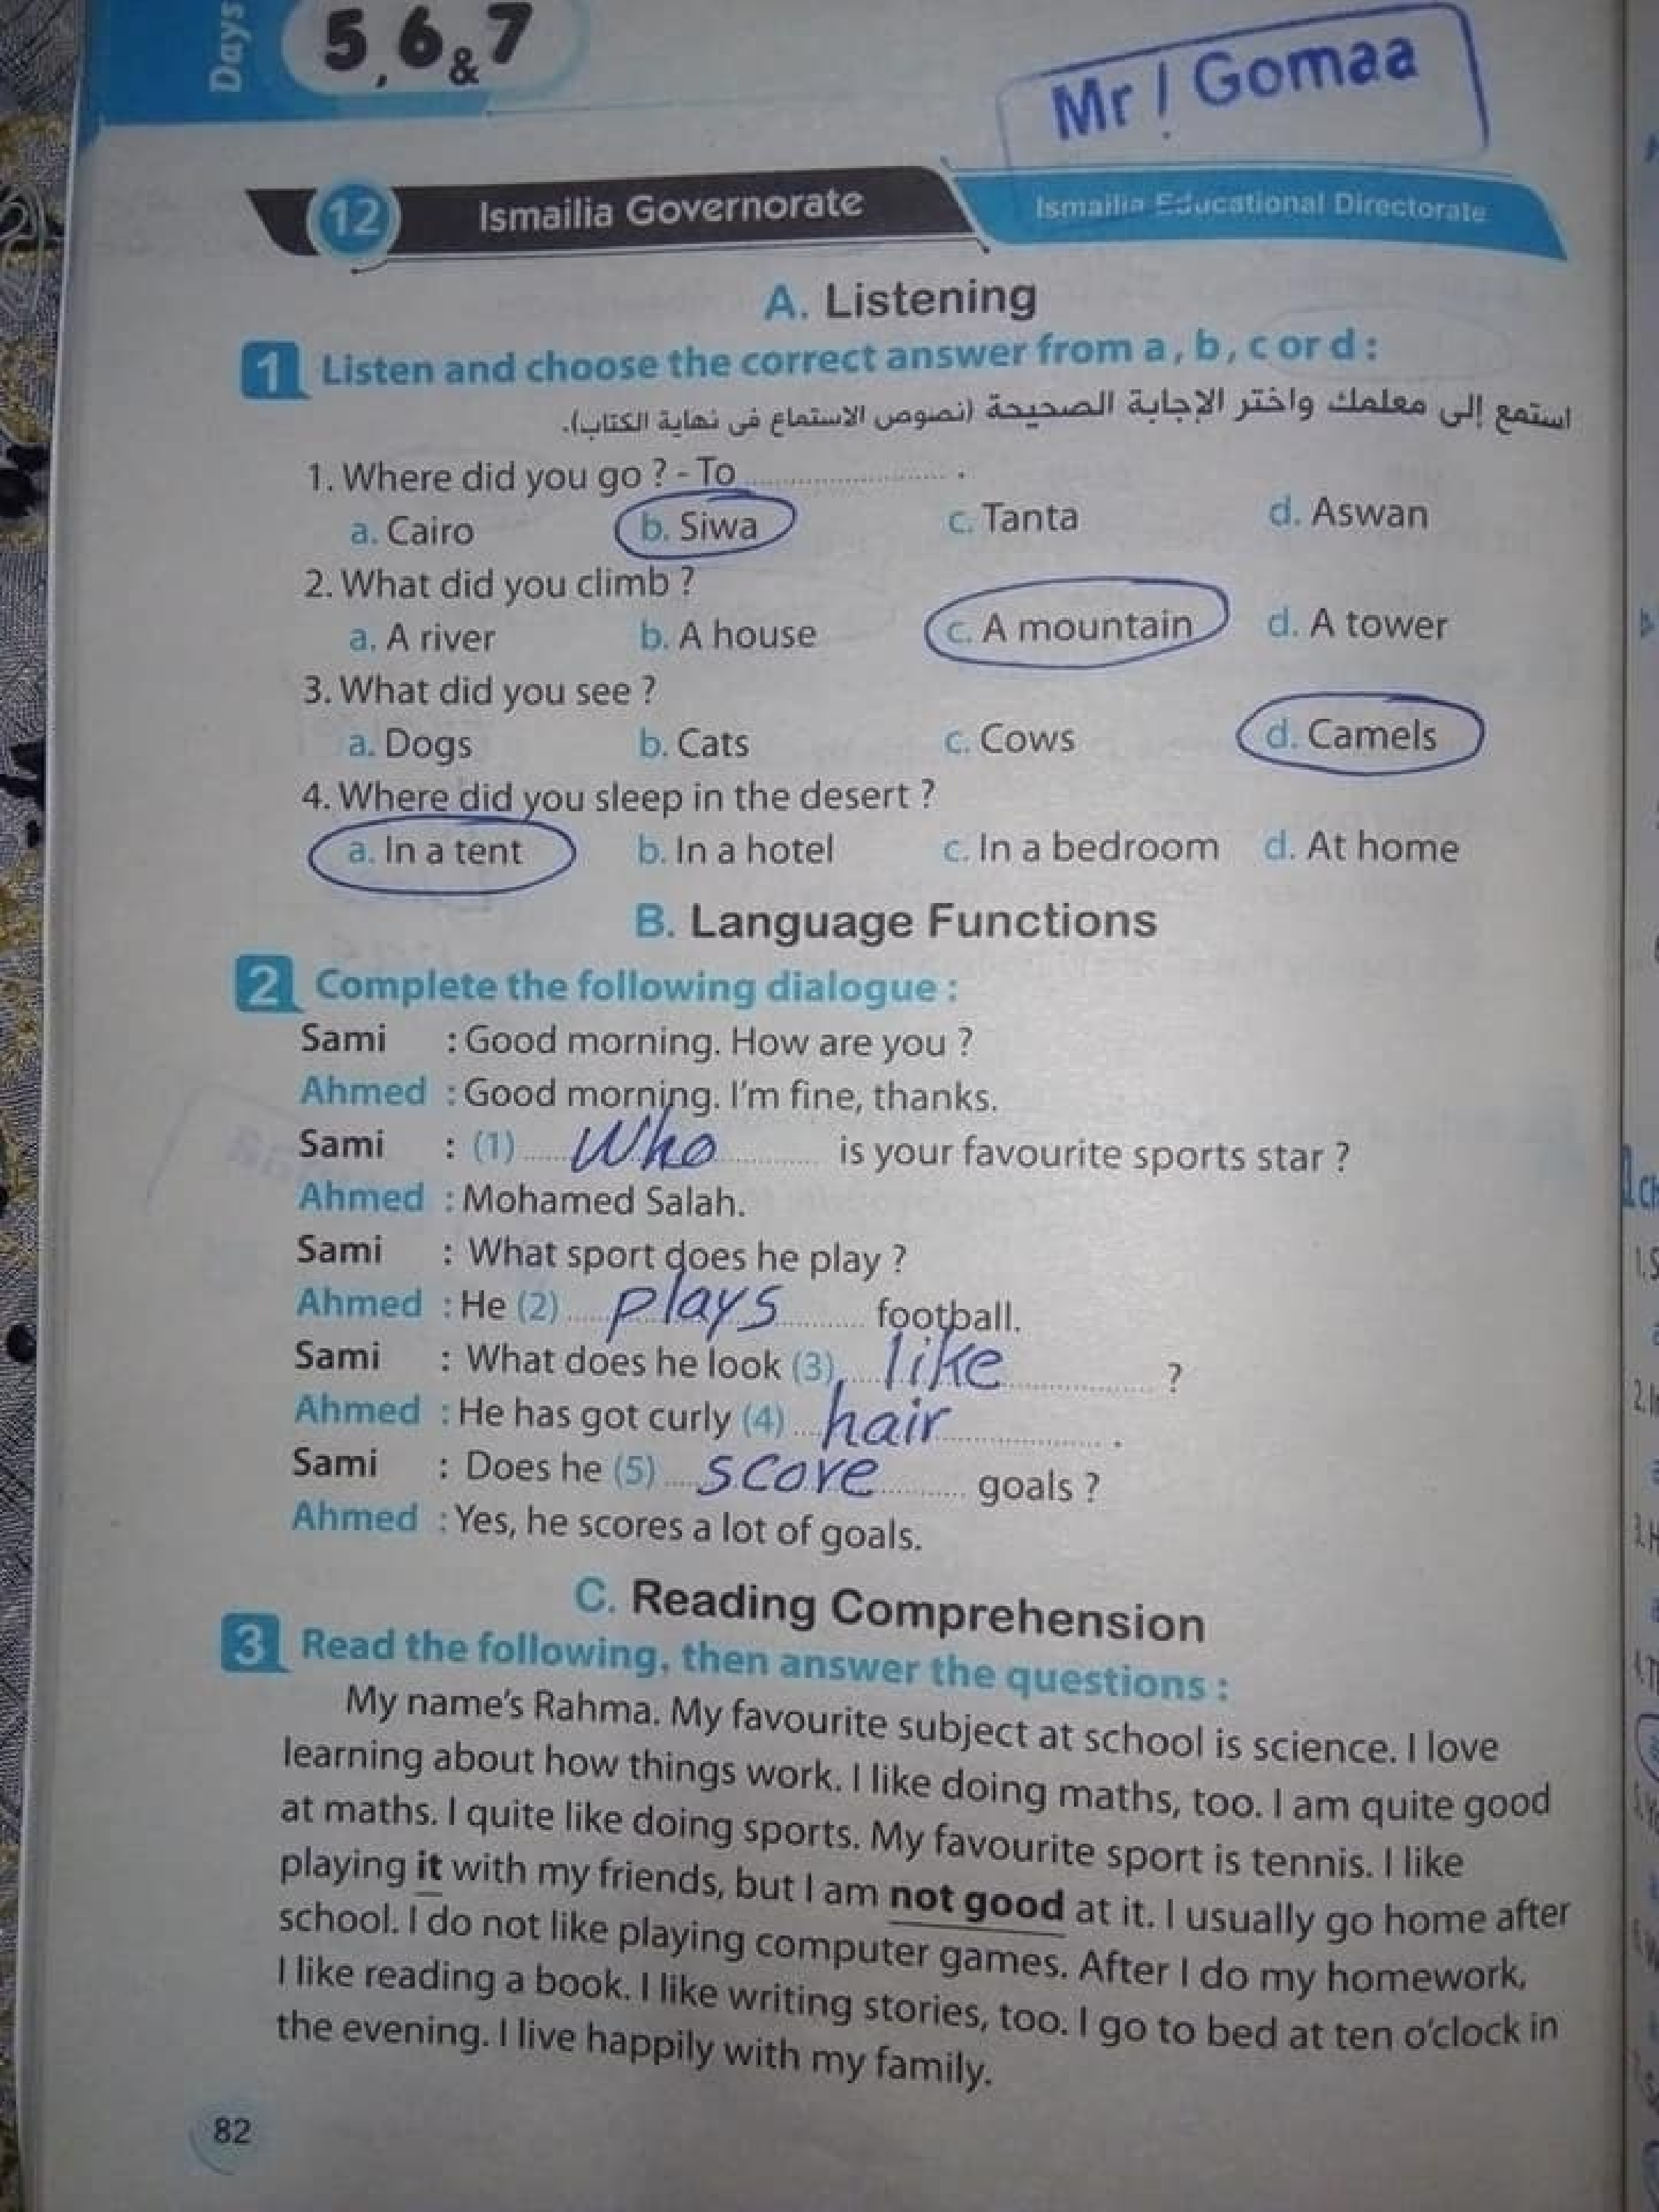 Days 5, 6 & 7
Mr / Gomaa
12 Ismailia Governorate Ismailia Educational Directorate
A. Listening
1 Listen and choose the correct answer from a , b , c or d :
استمع إلى معلمك واختر الإجابة الصحيحة (نصوص الاستماع فى نهاية الكتاب).
1. Where did you go ? - To .................... .
a. Cairo b. Siwa c. Tanta d. Aswan
2. What did you climb ?
a. A river b. A house c. A mountain d. A tower
3. What did you see ?
a. Dogs b. Cats c. Cows d. Camels
4. Where did you sleep in the desert ?
a. In a tent b. In a hotel c. In a bedroom d. At home
B. Language Functions
2 Complete the following dialogue :
Sami : Good morning. How are you ?
Ahmed : Good morning. I'm fine, thanks.
Sami : (1) Who is your favourite sports star ?
Ahmed : Mohamed Salah.
Sami : What sport does he play ?
Ahmed : He (2) plays football.
Sami : What does he look (3) like ?
Ahmed : He has got curly (4) hair .
Sami : Does he (5) score goals ?
Ahmed : Yes, he scores a lot of goals.
C. Reading Comprehension
3 Read the following, then answer the questions :
My name's Rahma. My favourite subject at school is science. I love
learning about how things work. I like doing maths, too. I am quite good
at maths. I quite like doing sports. My favourite sport is tennis. I like
playing it with my friends, but I am not good at it. I usually go home after
school. I do not like playing computer games. After I do my homework,
I like reading a book. I like writing stories, too. I go to bed at ten o'clock in
the evening. I live happily with my family.
82